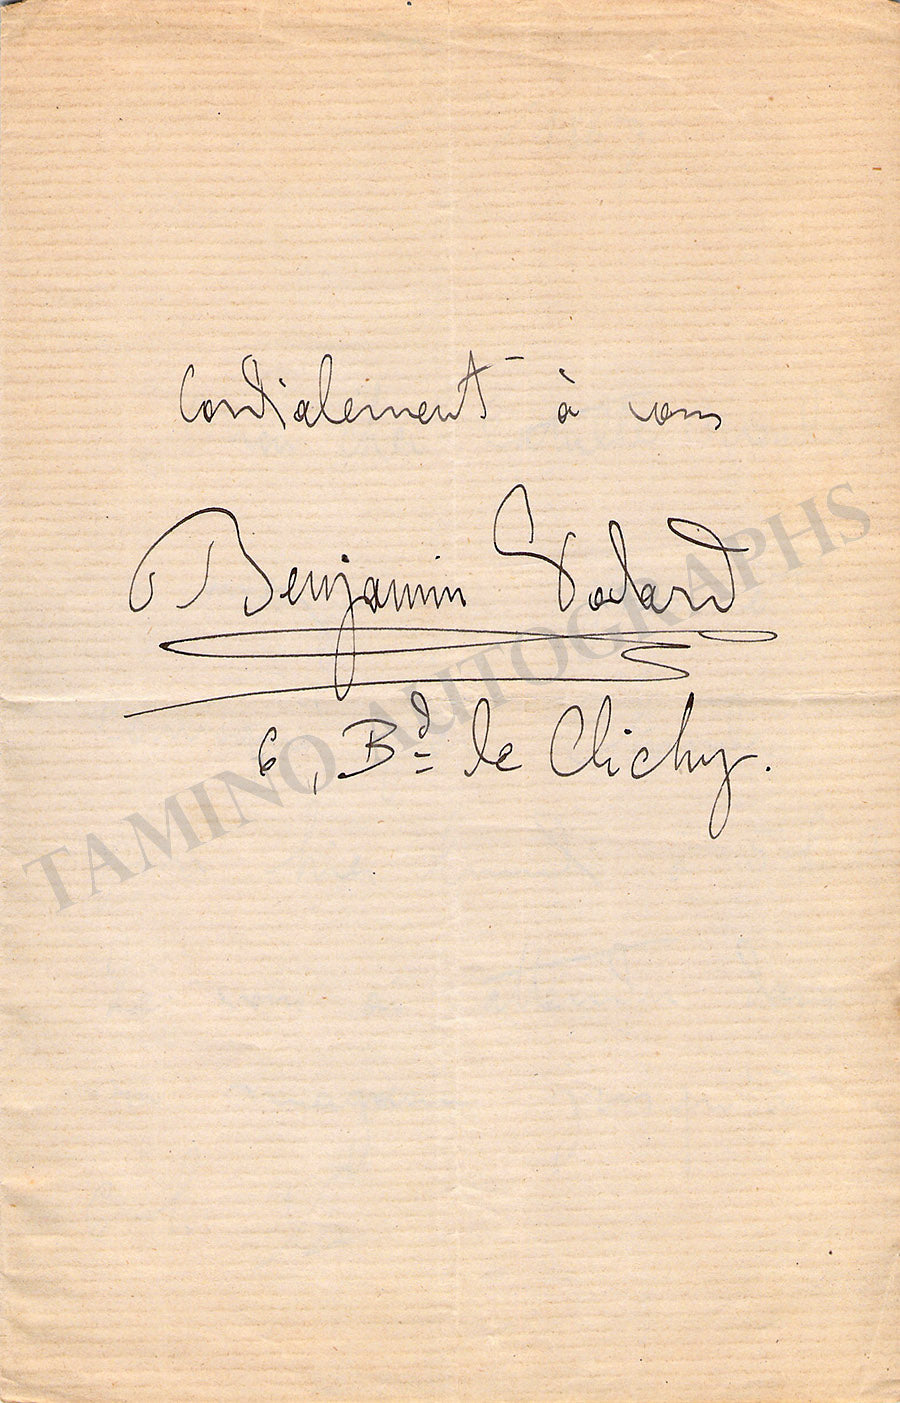 Cordialement à vous
Benjamin Godard
6, Bd de Clichy.
TAMINO AUTOGRAPHS